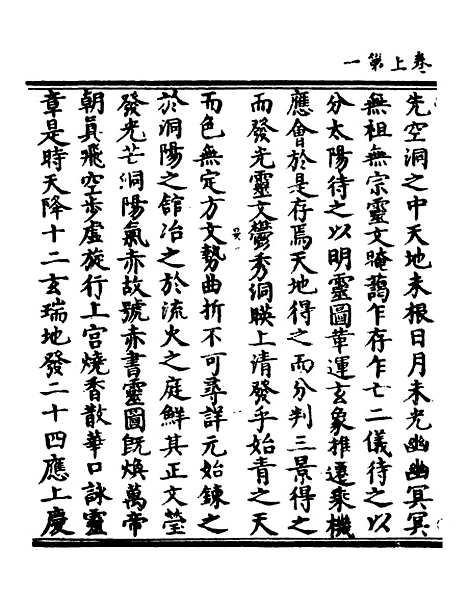 卷上第一
先空洞之中天地未根日月未光幽幽冥冥
無祖無宗靈文晻藹乍存乍亡二儀待之以
分太陽待之以明靈圖革運玄象推遷乘機
應會於是存焉天地得之而分判三景得之
而發光靈文鬱秀洞暎上清發乎始青之天
而色無定方文勢曲折不可尋詳元始鍊之
於洞陽之館冶之於流火之庭鮮其正文瑩
發光芒洞陽氣赤故號赤書靈圖旣煥萬帝
朝眞飛空步虛旋行上宫燒香散華口詠靈
章是時天降十二玄瑞地發二十四應上慶